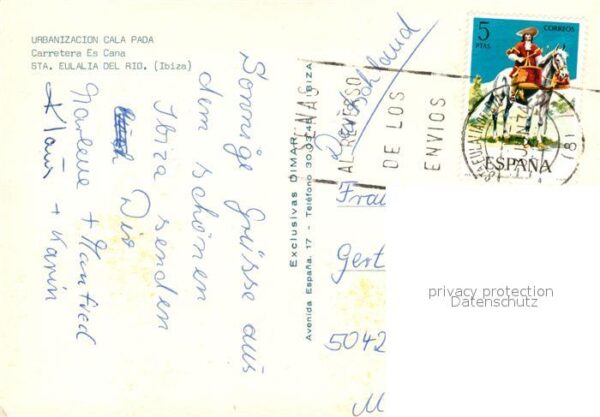 URBANIZACION CALA PADA
Carretera Es Cana
STA. EULALIA DEL RIO. (Ibiza)
Sonnige Grüsse aus
dem schönen
Ibiza senden
Dir
Marlene + Manfred
Klaus + Karin
Exclusivas DIMAR.
Avenida España, 17 - Teléfono 30.07.48 - IBIZA
AL REVERSO
DE LOS
ENVIOS
Deutschland
5 PTAS
CORREOS
ESPAÑA
Frau
Gert
5042
M
privacy protection
Datenschutz